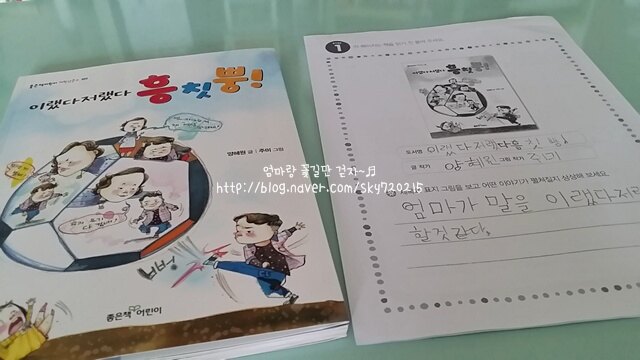 이랬다저랬다 흥칫뿡!
양혜원 글 주미 그림
빠방!
좋은책 어린이
엄마랑 꽃길만 걷자~♬
http://blog.naver.com/sky720215
1
흥칫뿡!
도서명 이랬다저랬다 흥칫 뿡!
글 작가 양혜원 그림 작가 주미
표지 그림을 보고 어떤 이야기가 펼쳐질지 상상해 보세요.
엄마가 말을 이랬다저
할것같다.